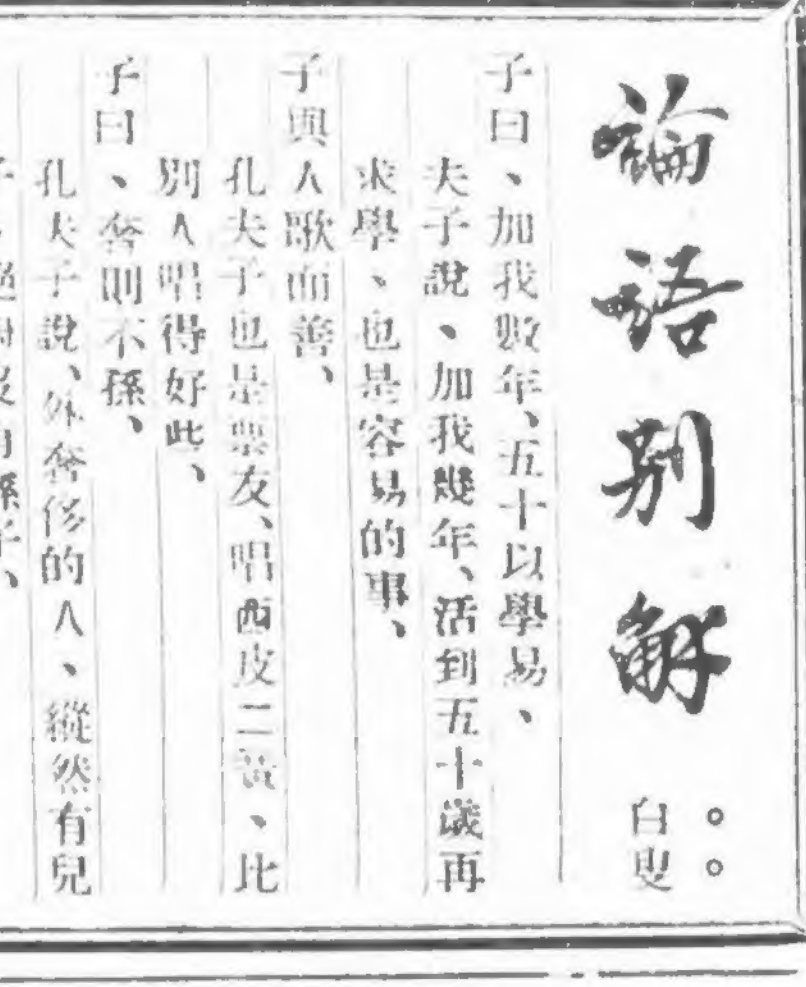 論語別解
白叟
子曰、加我數年、五十以學易、
夫子說、加我幾年、活到五十歲再
求學、也是容易的事、
子與人歌而善、
孔夫子也是票友、唱西皮二黃、比
別人唱得好些、
子曰、奢則不孫、
孔夫子說、外奢侈的人、縱然有兒